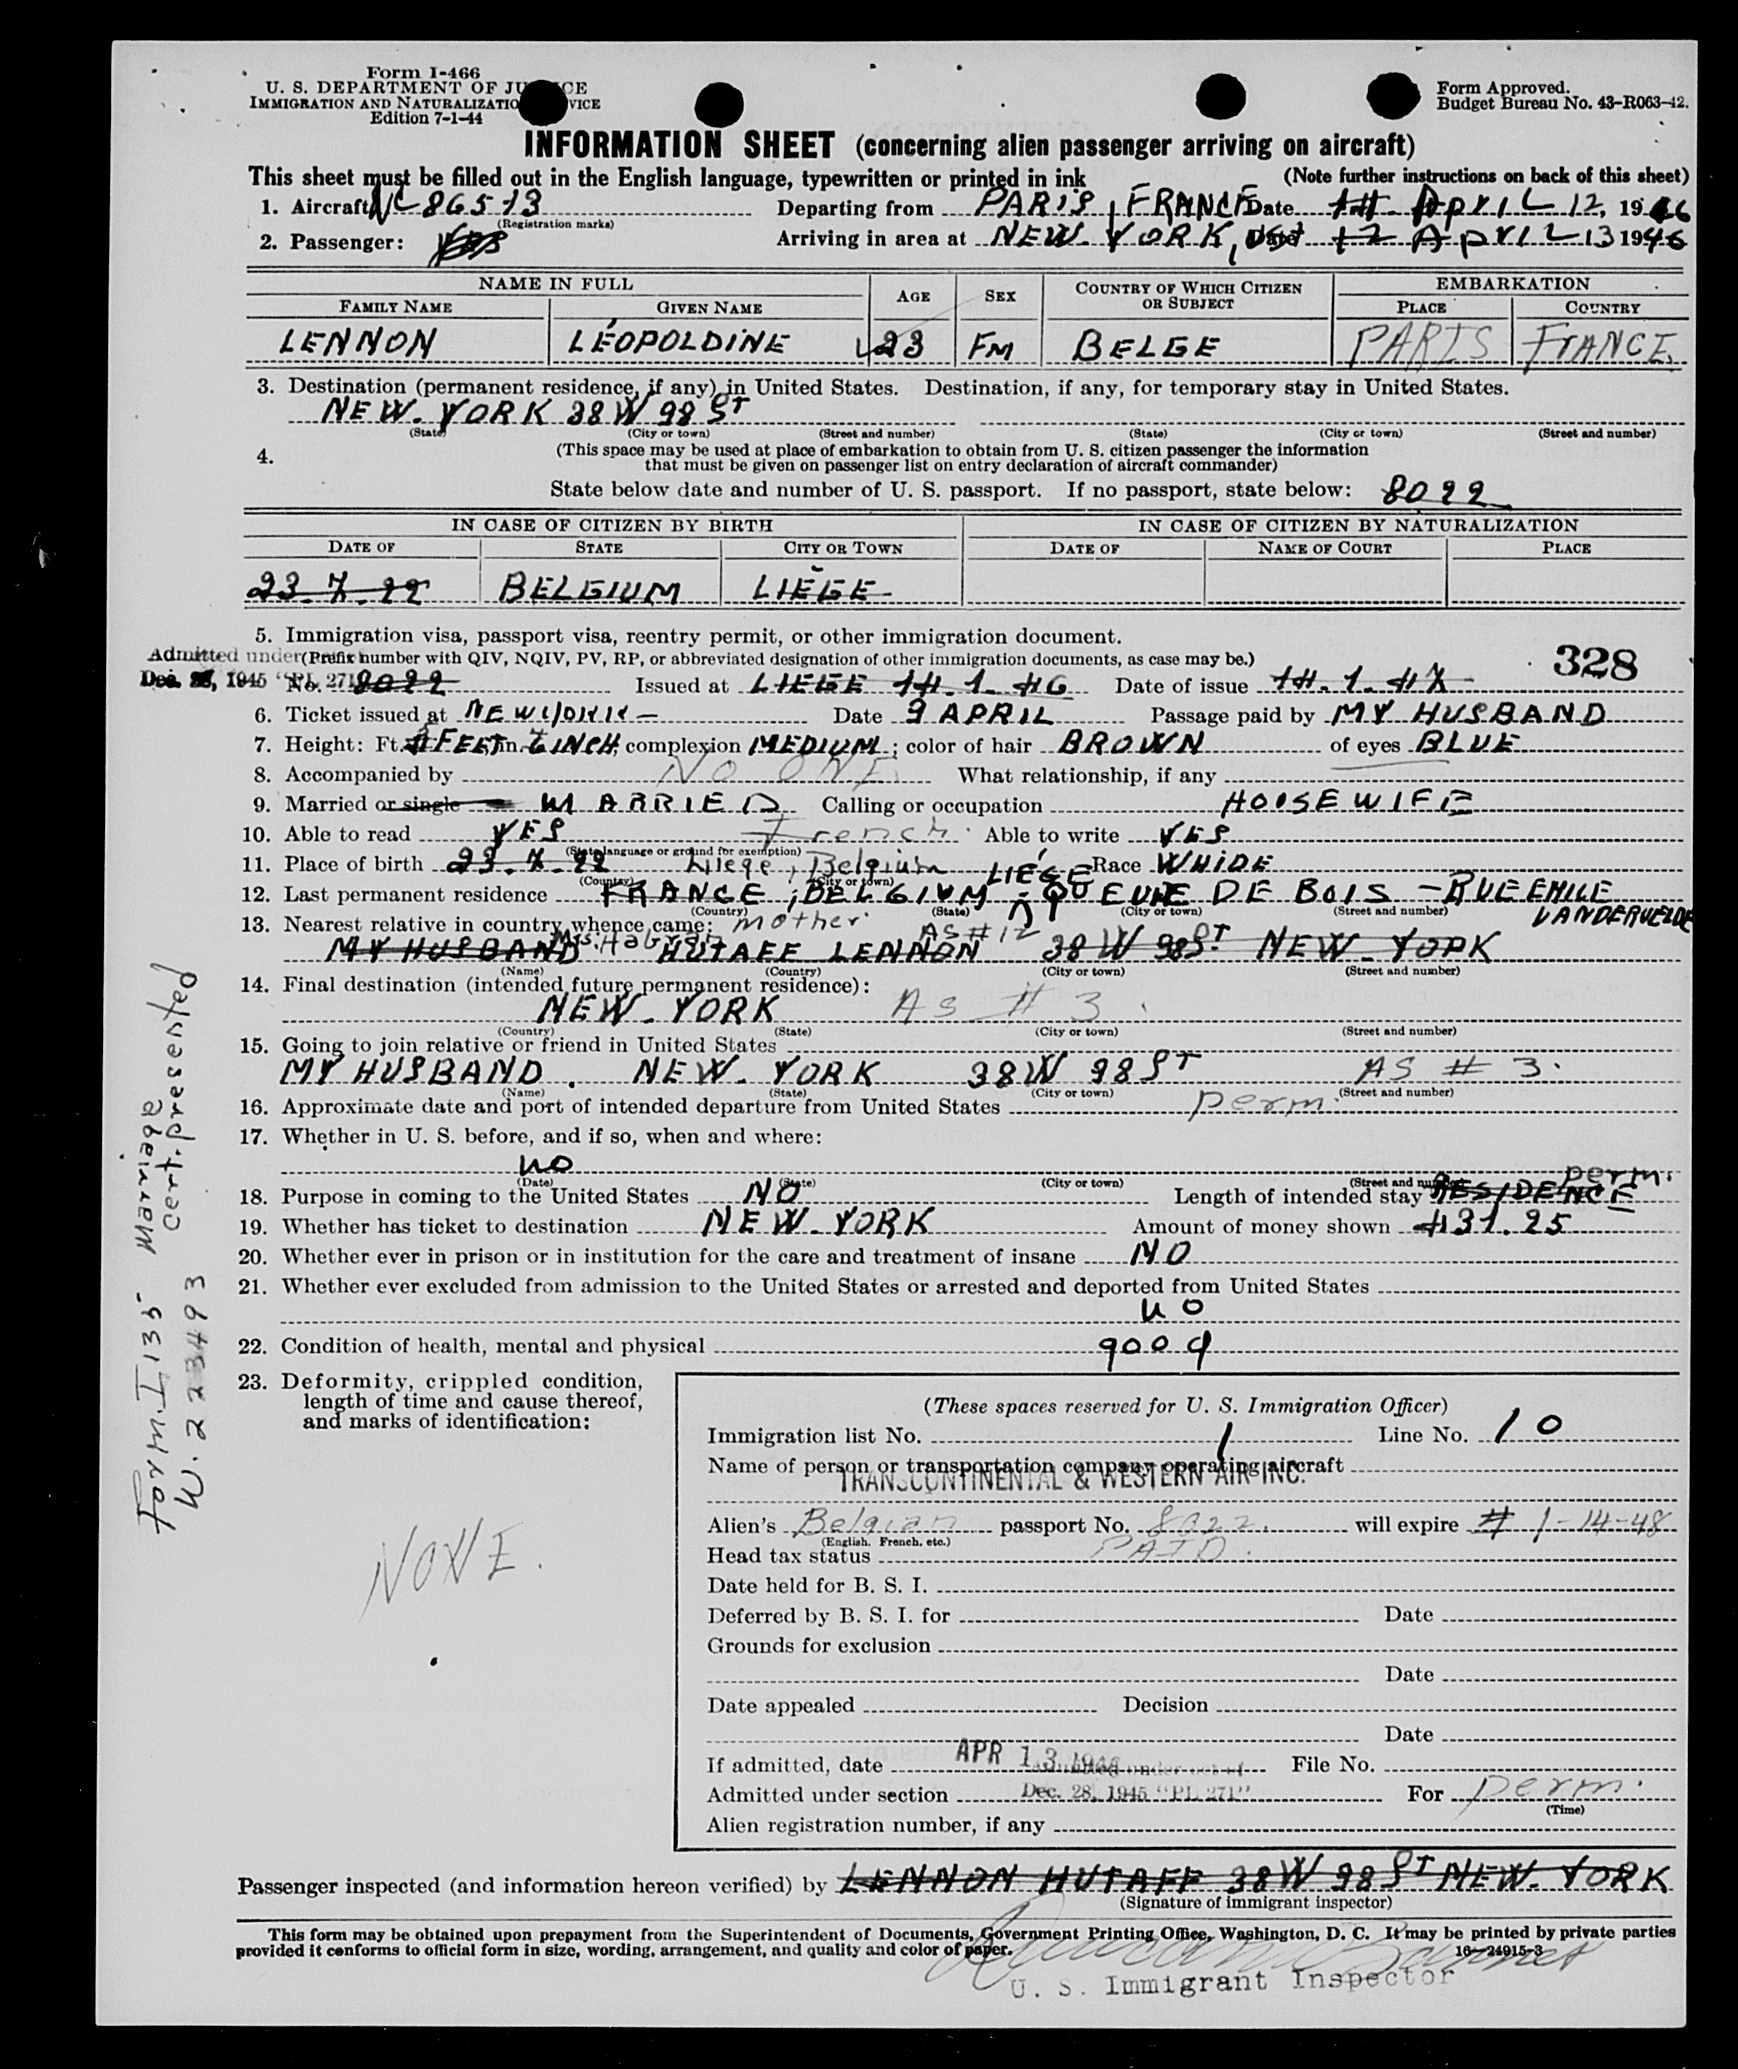 Form I-466
U. S. DEPARTMENT OF JU CE
IMMIGRATION AND NATURALIZATIO VICE
Edition 7-1-44
Form Approved.
Budget Bureau No. 43-R063-42.
INFORMATION SHEET (concerning alien passenger arriving on aircraft)
This sheet must be filled out in the English language, typewritten or printed in ink (Note further instructions on back of this sheet)
1. Aircraft NC 86513 Departing from PARIS, FRANCE Date April 12, 1946
(Registration marks)
2. Passenger: Arriving in area at NEW. YORK, Date 12 April 13 1946
NAME IN FULL AGE SEX COUNTRY OF WHICH CITIZEN OR SUBJECT EMBARKATION
FAMILY NAME GIVEN NAME PLACE COUNTRY
LENNON LÉOPOLDINE 23 FM BELGE PARIS FRANCE
3. Destination (permanent residence, if any) in United States. Destination, if any, for temporary stay in United States.
NEW. YORK 38 W 98 ST
(State) (City or town) (Street and number) (State) (City or town) (Street and number)
4. (This space may be used at place of embarkation to obtain from U. S. citizen passenger the information
that must be given on passenger list on entry declaration of aircraft commander)
State below date and number of U. S. passport. If no passport, state below: 8022
IN CASE OF CITIZEN BY BIRTH IN CASE OF CITIZEN BY NATURALIZATION
DATE OF STATE CITY OR TOWN DATE OF NAME OF COURT PLACE
23.7.22 BELGIUM LIÈGE
5. Immigration visa, passport visa, reentry permit, or other immigration document.
Admitted under (Prefix number with QIV, NQIV, PV, RP, or abbreviated designation of other immigration documents, as case may be.) 328
Dec. 28, 1945 "PL 271 No. 8022 Issued at LIEGE 14.1.46 Date of issue 14.1.47
6. Ticket issued at NEW YORK - Date 9 APRIL Passage paid by MY HUSBAND
7. Height: Ft. FEET in. 6 INCH; complexion MEDIUM; color of hair BROWN of eyes BLUE
8. Accompanied by NO ONE What relationship, if any
9. Married or single MARRIED Calling or occupation HOUSEWIFE
10. Able to read YES French Able to write YES
(State language or ground for exemption)
11. Place of birth 23.7.22 Liege, Belgium Race WHIDE
(Country) (City or town) LIÉGE
12. Last permanent residence FRANCE, BELGIUM - QUEUE DE BOIS - RUE EMILE VANDERVELDE
(Country) (State) (City or town) (Street and number)
13. Nearest relative in country whence came: mother AS # 12
MY HUSBAND Mrs. HUTAFF LENNON 38 W 98 ST NEW. YORK
(Name) (Country) (City or town) (Street and number)
14. Final destination (intended future permanent residence):
NEW. YORK AS # 3
(Country) (State) (City or town) (Street and number)
15. Going to join relative or friend in United States
MY HUSBAND. NEW. YORK 38 W 98 ST AS # 3.
(Name) (State) (City or town) (Street and number)
16. Approximate date and port of intended departure from United States perm.
17. Whether in U. S. before, and if so, when and where:
no
(Date) (State) (City or town) (Street and number)
18. Purpose in coming to the United States NO Length of intended stay RESIDENCE perm.
19. Whether has ticket to destination NEW. YORK Amount of money shown 31.25
20. Whether ever in prison or in institution for the care and treatment of insane NO
21. Whether ever excluded from admission to the United States or arrested and deported from United States
no
22. Condition of health, mental and physical good
23. Deformity, crippled condition,
length of time and cause thereof,
and marks of identification:
NONE.
Form I 135 - Marriage
cert. presented
W. 223493
(These spaces reserved for U. S. Immigration Officer)
Immigration list No. 1 Line No. 10
Name of person or transportation company operating aircraft
TRANSCONTINENTAL & WESTERN AIR INC.
Alien's Belgian passport No. 8022. will expire 1-14-48
(English, French, etc.)
Head tax status PAID.
Date held for B. S. I.
Deferred by B. S. I. for Date
Grounds for exclusion
Date
Date appealed Decision
Date
If admitted, date APR 13 1946 File No.
Admitted under act of
Admitted under section Dec. 28, 1945 "PL 271" For perm.
(Time)
Alien registration number, if any
Passenger inspected (and information hereon verified) by LENNON HUTAFF 38 W 98 ST NEW. YORK
(Signature of immigrant inspector)
This form may be obtained upon prepayment from the Superintendent of Documents, Government Printing Office, Washington, D. C. It may be printed by private parties
provided it conforms to official form in size, wording, arrangement, and quality and color of paper. 16-24915-3
U. S. Immigrant Inspector